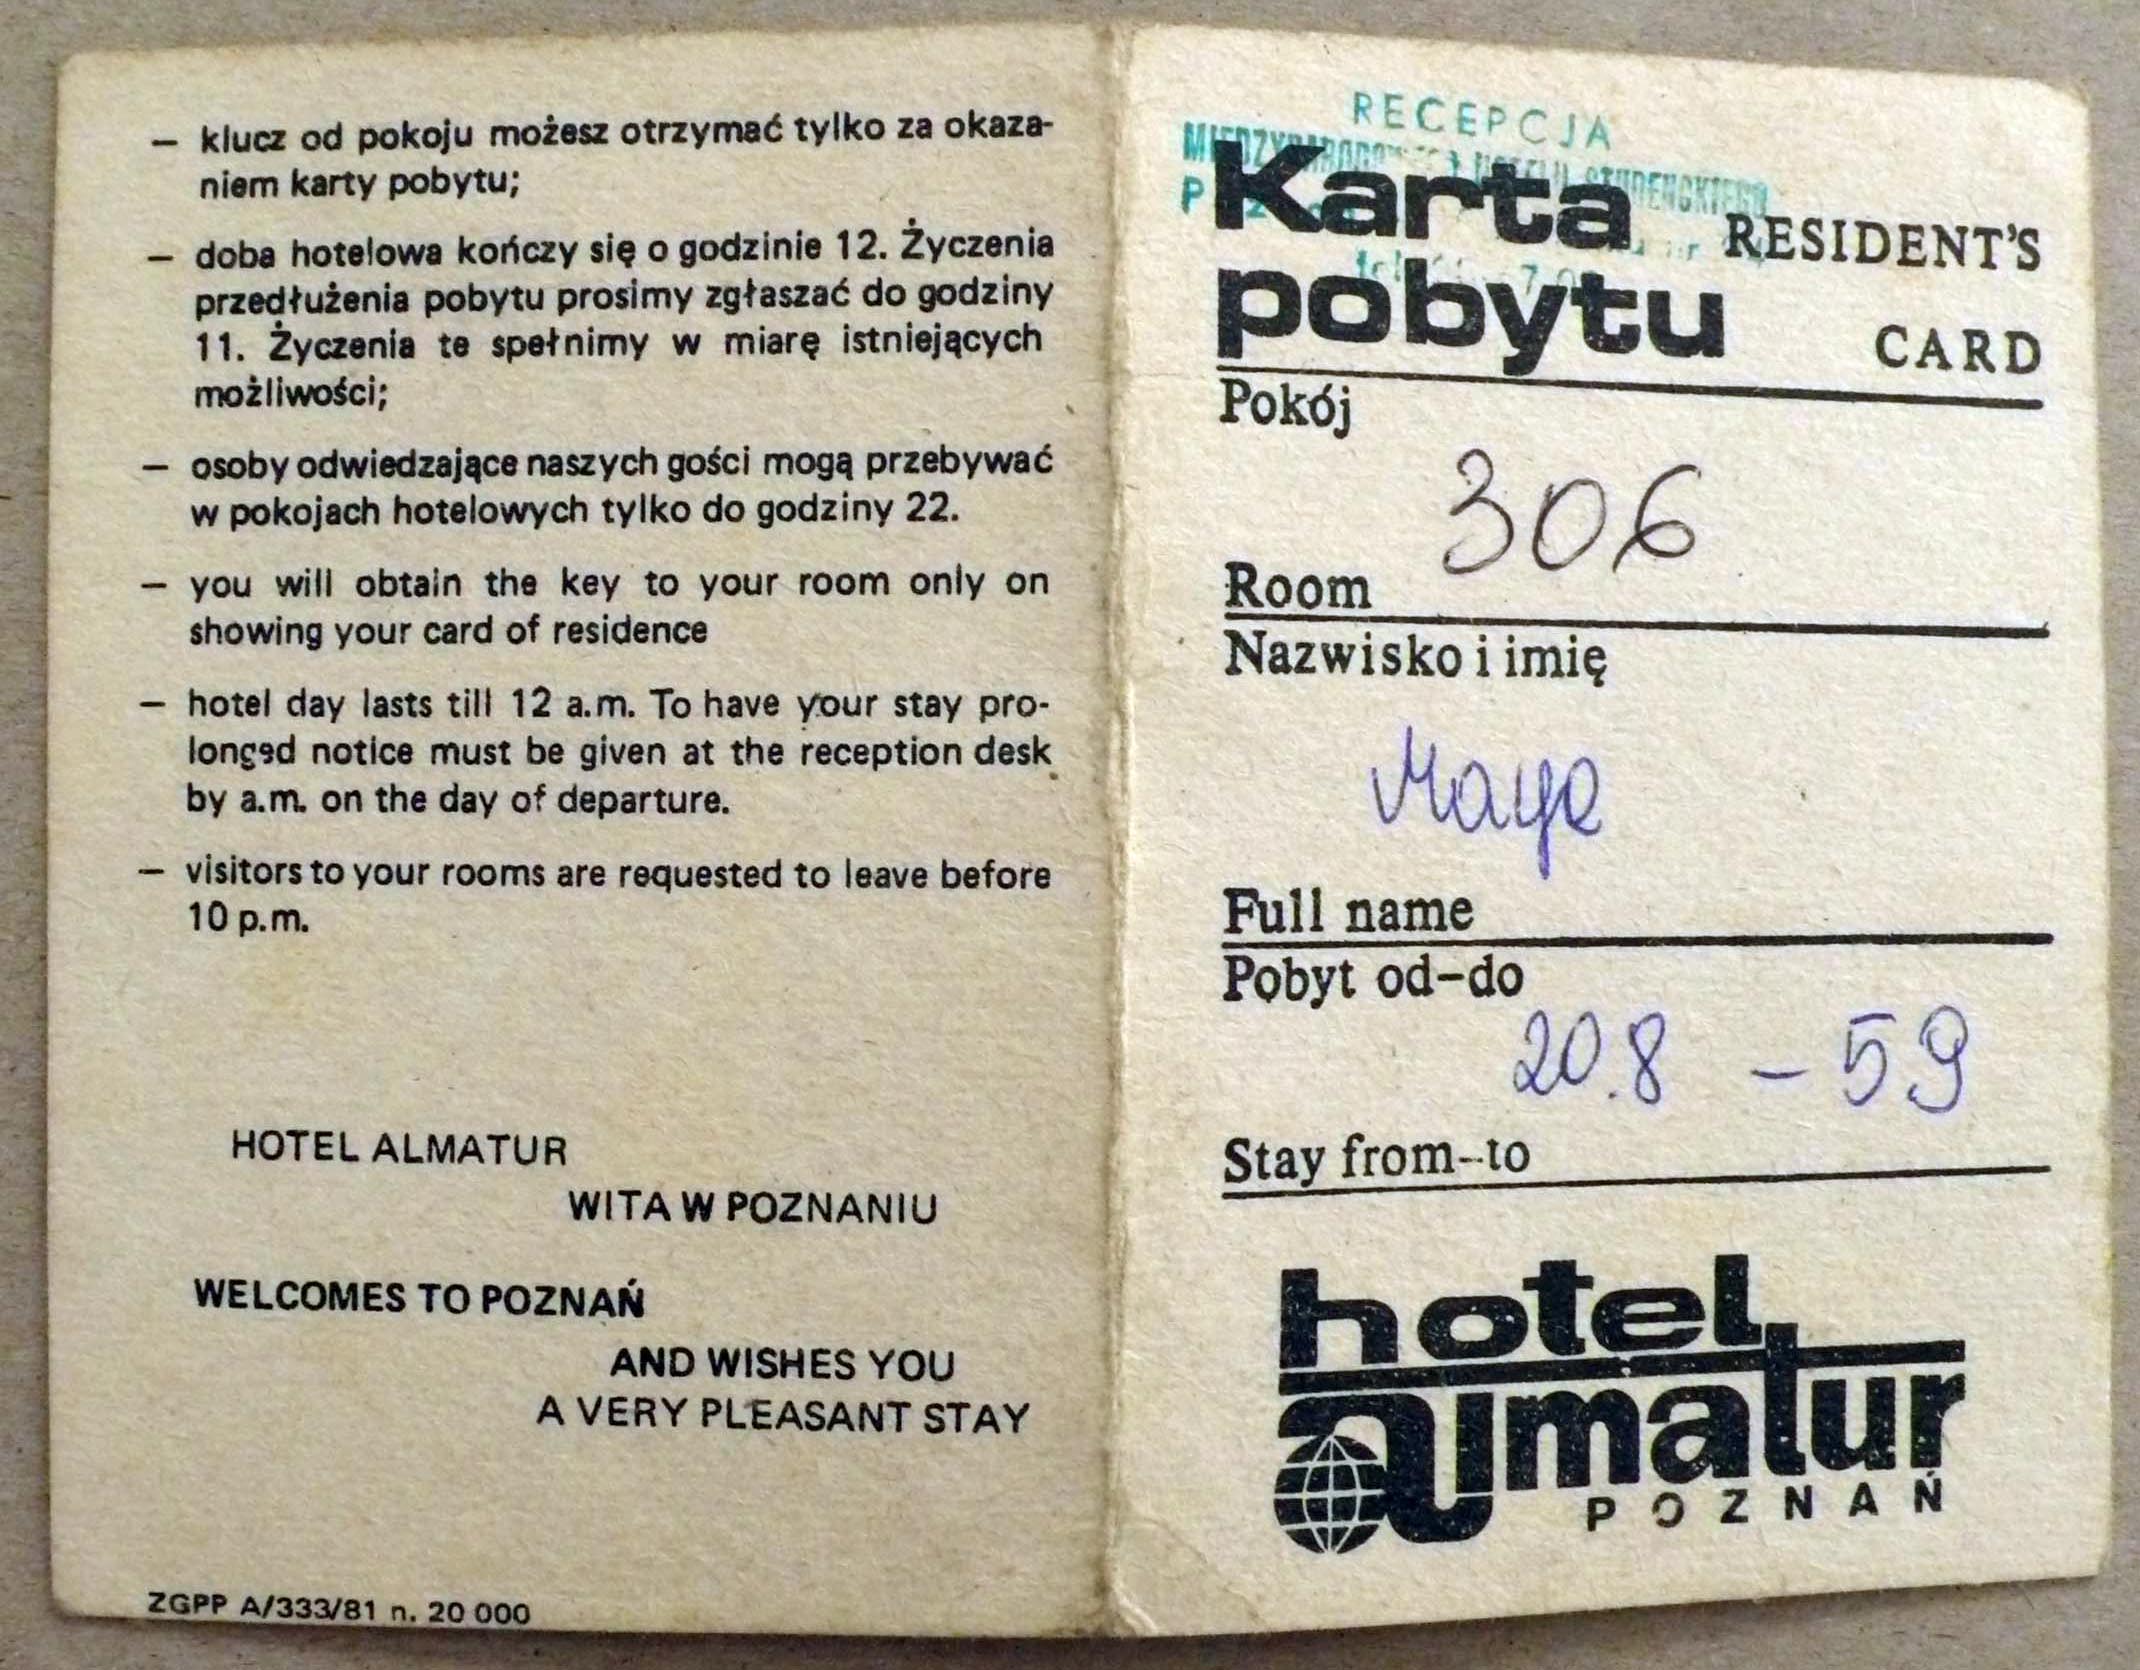 – klucz od pokoju możesz otrzymać tylko za okaza-
niem karty pobytu;
– doba hotelowa kończy się o godzinie 12. Życzenia
przedłużenia pobytu prosimy zgłaszać do godziny
11. Życzenia te spełnimy w miarę istniejących
możliwości;
– osoby odwiedzające naszych gości mogą przebywać
w pokojach hotelowych tylko do godziny 22.
– you will obtain the key to your room only on
showing your card of residence
– hotel day lasts till 12 a.m. To have your stay pro-
longed notice must be given at the reception desk
by a.m. on the day of departure.
– visitors to your rooms are requested to leave before
10 p.m.
HOTEL ALMATUR
WITA W POZNANIU
WELCOMES TO POZNAŃ
AND WISHES YOU
A VERY PLEASANT STAY
ZGPP A/333/81 n. 20 000
RECEPCJA
STUDENCKIEGO
Karta
pobytu
RESIDENT'S
CARD
Pokój
306
Room
Nazwisko i imię
Full name
Pobyt od-do
20.8 – 59
Stay from-to
hotel
almatur
POZNAŃ